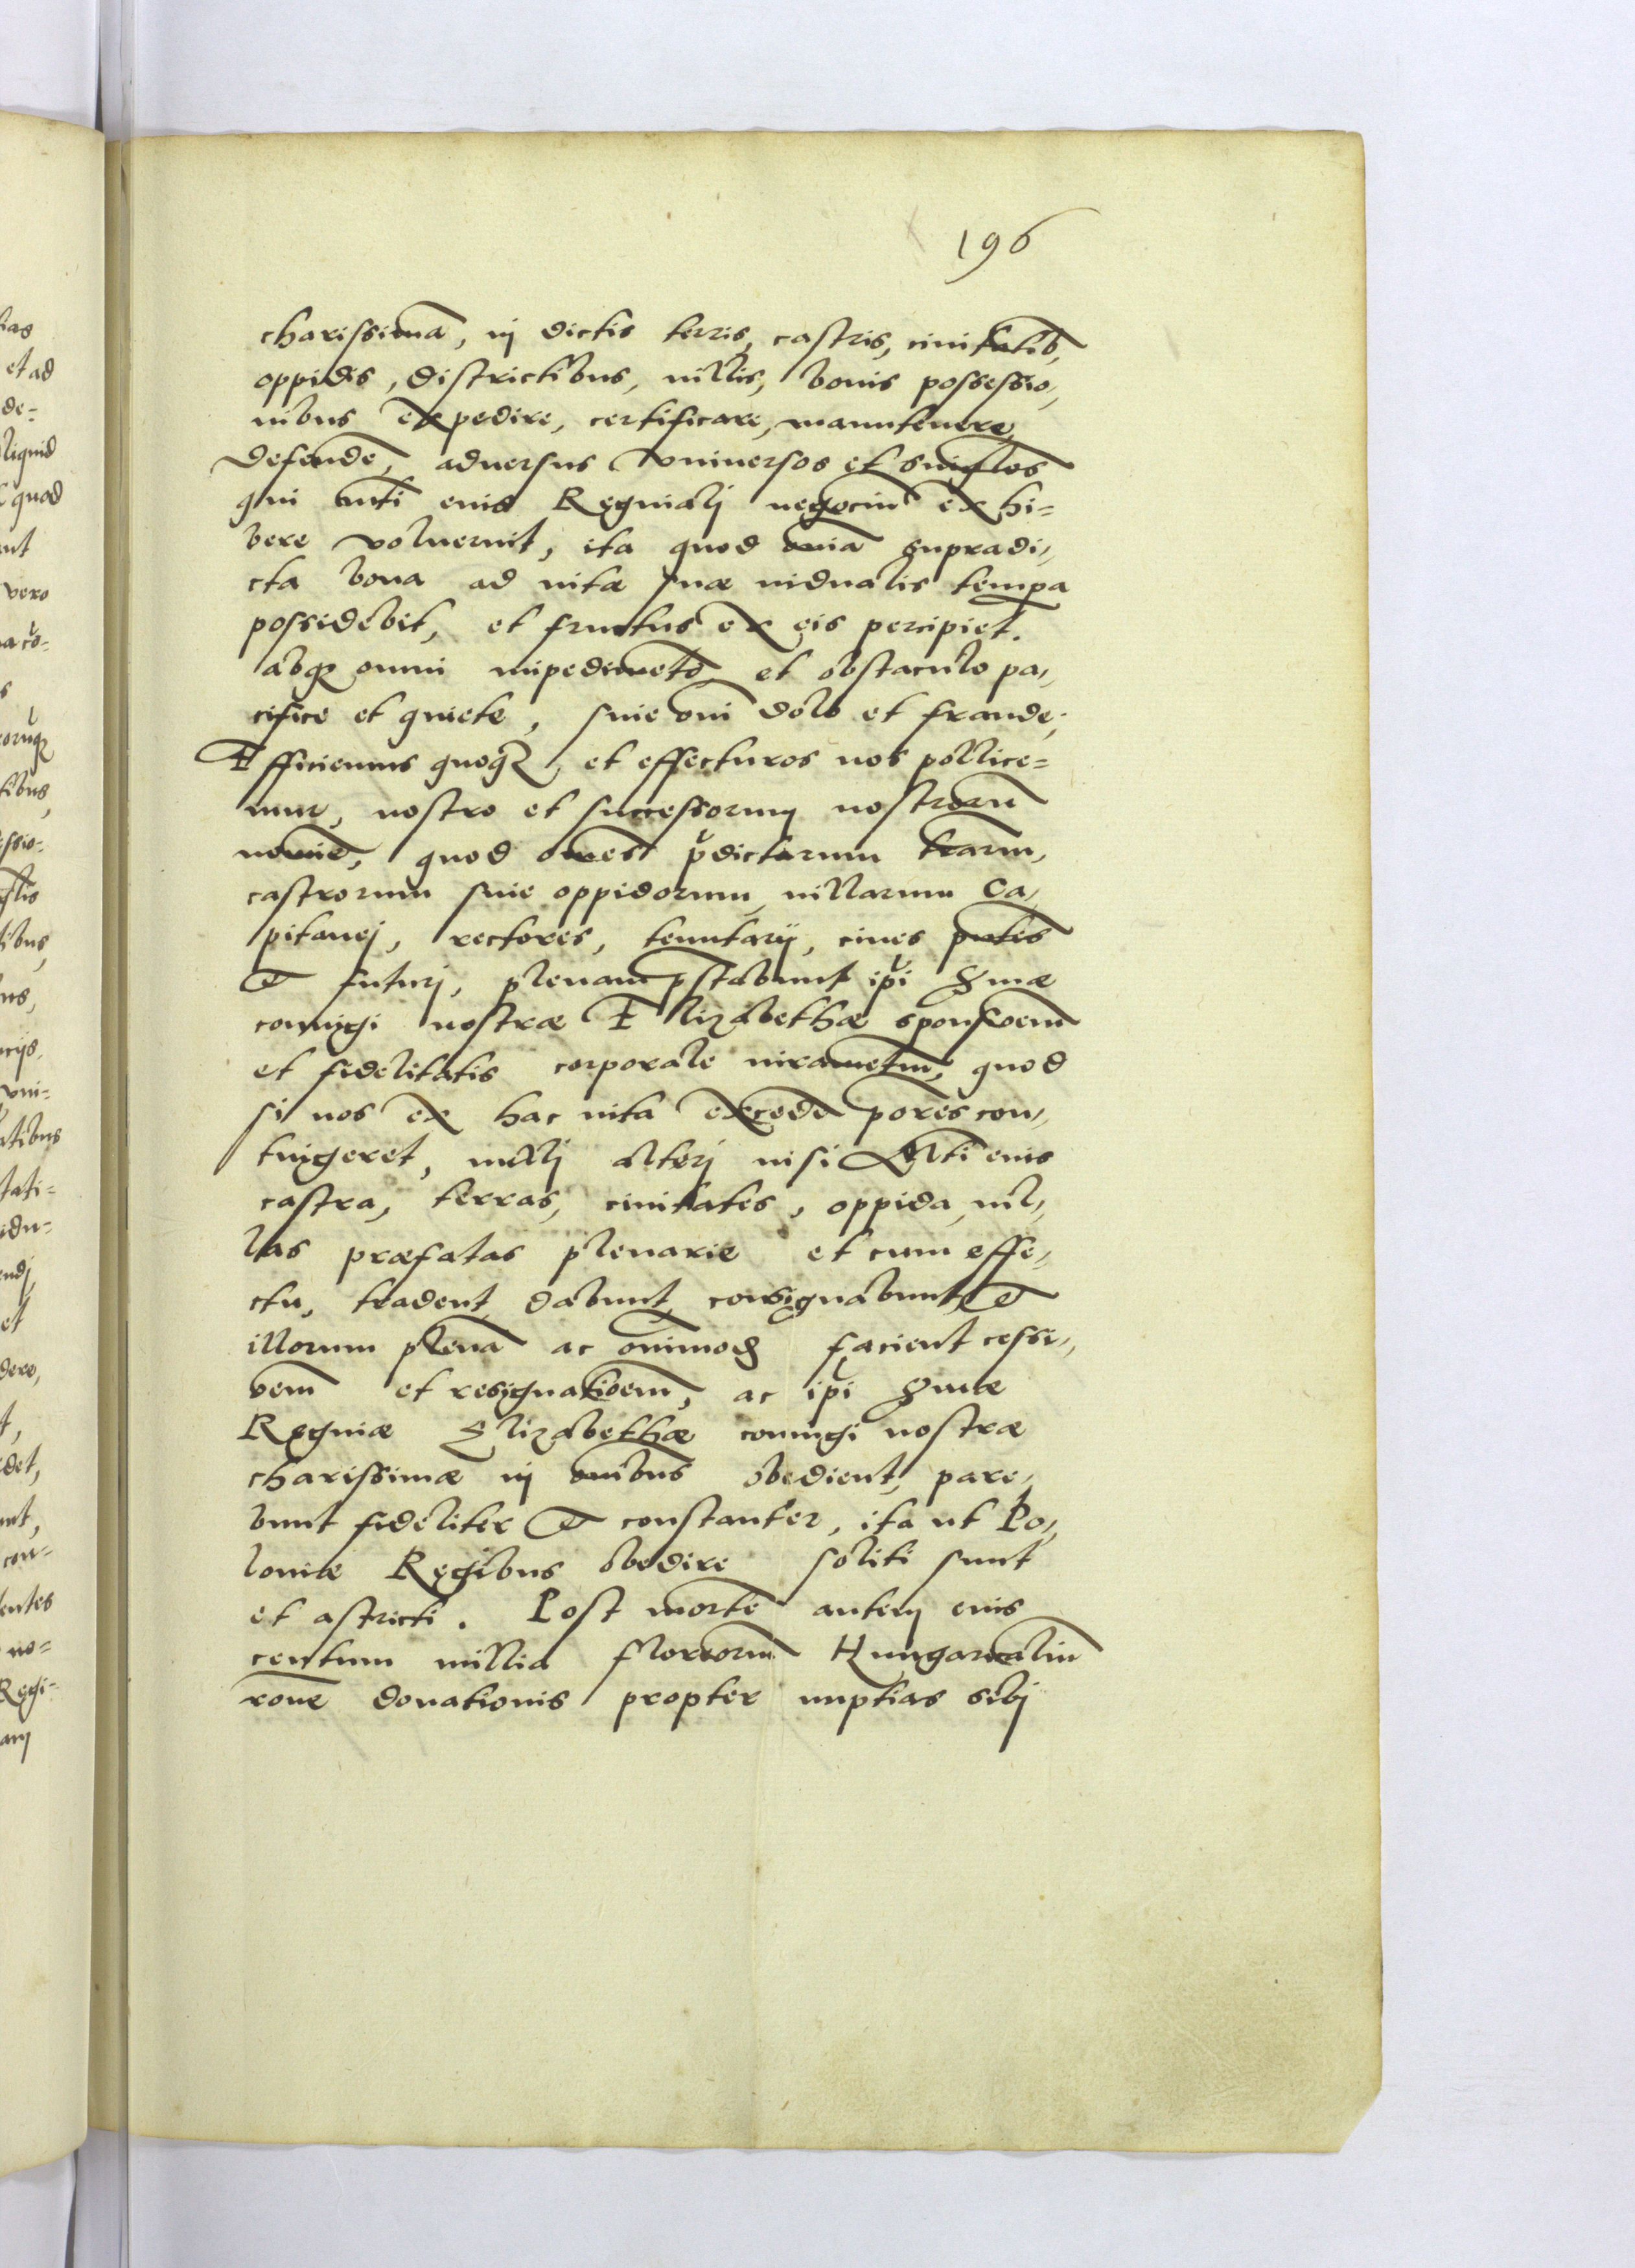 196
charissimā, in dictis terris, castris, ciuitatib,
oppidis, districtibus, villis, bonis possessio,
nibus expedire, certificare, manutenere,
defendē, aduersus vniuersos et singlos
qui eius Reginalj negociū exhi=
bere voluerint, ita quod oīa supradi,
cta bona ad vitæ suæ vidualis tempa
possidebit, et fructus ex eis percipiet.
absq omni impedimēto et obstaculo pa,
cifice et quiete, sine oī dolo et fraude,
Efficiemus quoq, et effecturos nos pollice=
mur, nostro et successorum nostrorū
nomīe, quod omēs pdictarum trarm,
castrorum siue oppidorum, villarum Ca,
pitanej, rectores, tenutarij, ciues pntes
et futurj, plenam pstabunt ipi Smæ
coniugi nostræ Elizabethæ sponsioem
et fidelitatis corporale iuramētm, quod
si nos ex hac vita excedē pores con,
tingeret, nullj alterj nisi eius
castra, terras, ciuitates, oppida, vil,
las præfatas plenarie et cum effe,
ctu, tradent, dabunt, consignabunt, et
illorum plenā ac omimod facient cessi,
oem et resignatioem, ac ipi Smæ
Reginæ Elizabethæ coniugi nostræ
charissimæ in oībus obedient, pare,
bunt fideliter et constanter, ita ut Po,
loniæ Regibus obedire soliti sunt
et astricti. Post mortē autem eius
centum millia florenorm Hungaricaliū
rone donationis propter nuptias sibj